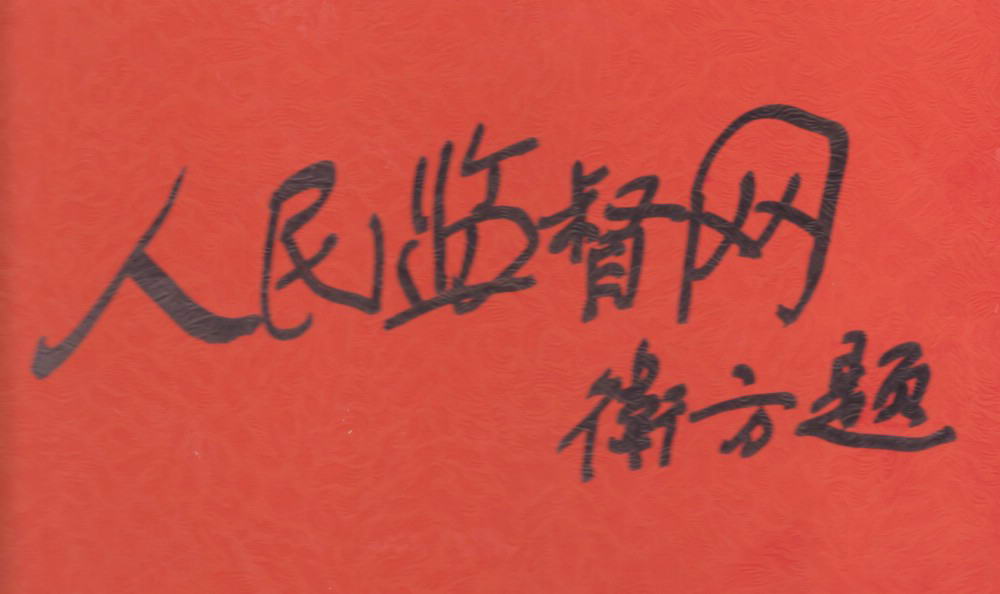 人民监督网
衛方题